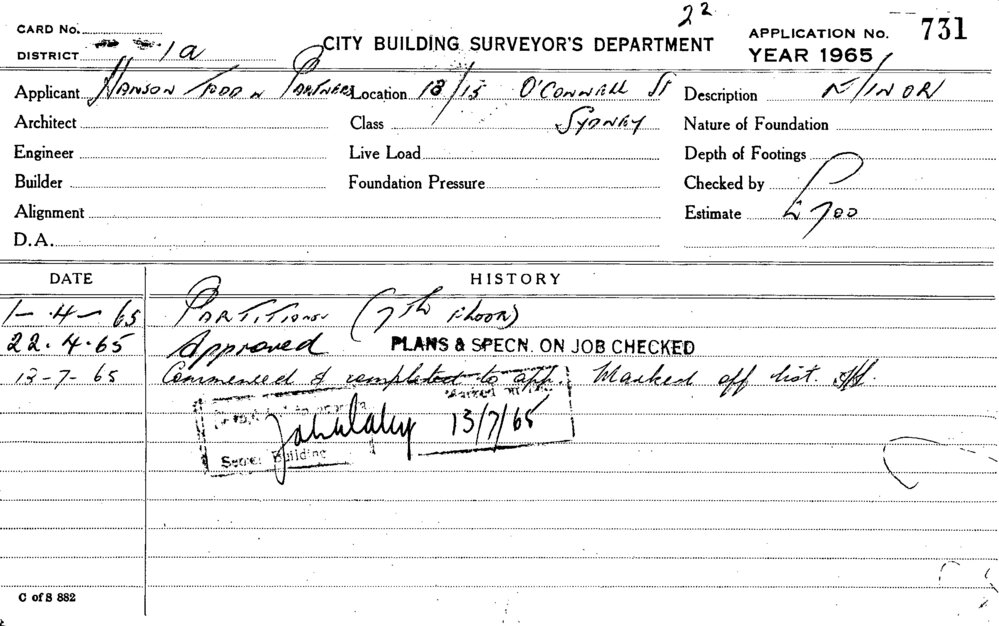 22
CARD No.
CITY BUILDING SURVEYOR'S DEPARTMENT
APPLICATION No. 731
DISTRICT 1a
YEAR 1965
Applicant HANSON TODD & PARTNERS Location 13/15 O'CONNELL ST Description MINOR
Architect Class SYDNEY Nature of Foundation
Engineer Live Load Depth of Footings
Builder Foundation Pressure Checked by
Alignment Estimate £700
D.A.
DATE HISTORY
1-4-65 PARTITIONS (7th FLOOR)
22.4.65 Approved PLANS & SPECN. ON JOB CHECKED
13-7-65 Commenced & completed to app. Marked off list.
Marked off
13/7/65
Building
C of S 882